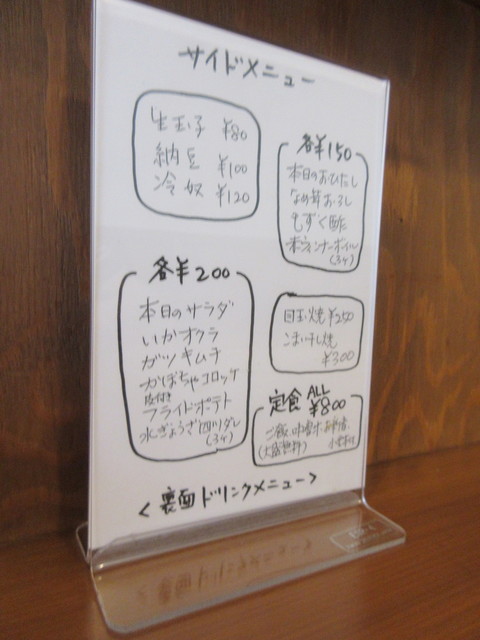 サイドメニュー
生玉子 ¥80
納豆 ¥100
冷奴 ¥120
各¥150
本日のおひたし
なめ茸おろし
もずく酢
ウインナーボイル
(3ヶ)
各¥200
本日のサラダ
いかオクラ
ガツキムチ
かぼちゃコロッケ
皮付き
フライドポテト
水ぎょうざ四川ダレ
(3ヶ)
目玉焼¥250
¥300
定食 ALL ¥800
ご飯、味噌汁、お新香、
(大盛無料) 小鉢
<裏面ドリンクメニュー>